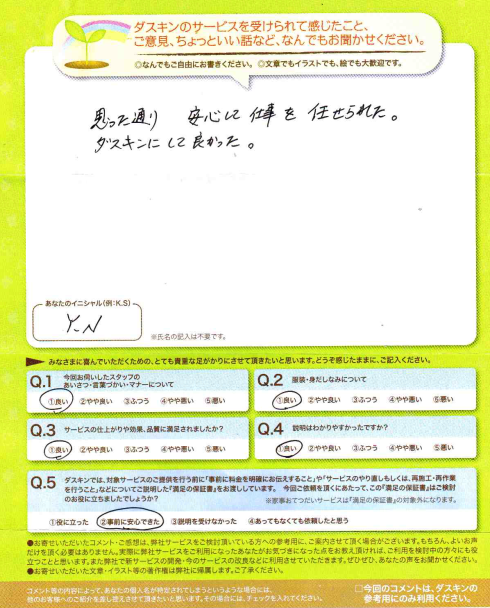 ダスキンのサービスを受けられて感じたこと、
ご意見、ちょっといい話など、なんでもお聞かせください。
◎なんでもご自由にお書きください。◎文章でもイラストでも、絵でも大歓迎です。
思った通り 安心して仕事を任せられた。
ダスキンにして良かった。
あなたのイニシャル(例:K.S)
Y-N
※氏名の記入は不要です。
みなさまに喜んでいただくための、とても貴重な足がかりにさせて頂きたいと思います。どうぞ感じたままに、ご記入ください。
Q.1 今回お伺いしたスタッフの
あいさつ・言葉づかい・マナーについて
①良い ②やや良い ③ふつう ④やや悪い ⑤悪い
Q.2 服装・身だしなみについて
①良い ②やや良い ③ふつう ④やや悪い ⑤悪い
Q.3 サービスの仕上がりや効果、品質に満足されましたか?
①良い ②やや良い ③ふつう ④やや悪い ⑤悪い
Q.4 説明はわかりやすかったですか?
①良い ②やや良い ③ふつう ④やや悪い ⑤悪い
Q.5 ダスキンでは、対象サービスのご提供を行う前に「事前に料金を明確にお伝えすること」や「サービスのやり直しもしくは、再施工・再作業
を行うこと」などについてご説明した『満足の保証書』をお渡ししています。 今回ご依頼を頂くにあたって、この『満足の保証書』はご検討
のお役に立ちましたでしょうか?
※家事おてつだいサービスは『満足の保証書』の対象外になります。
①役に立った ②事前に安心できた ③説明を受けなかった ④あってもなくても依頼したと思う
●お寄せいただいたコメント・ご感想は、弊社サービスをご検討頂いている方への参考用に、ご案内させて頂く場合がございます。もちろん、よいお声
だけを頂く必要はありません。実際に弊社サービスをご利用になったあなたがお気づきになった点をお教え頂ければ、ご利用を検討中の方々にも役
立つことと思います。また弊社で新サービスの開発・今のサービスの改良などに利用させていただきます。ぜひぜひ、あなたの声をお聞かせください。
●お寄せいただいた文章・イラスト等の著作権は弊社に帰属します。ご了承ください。
コメント等の内容によって、あなたの個人名が特定されてしまうというような場合には、
他のお客様へのご紹介を差し控えさせて頂きたいと思います。その場合には、チェックを入れてください。
□今回のコメントは、ダスキンの
参考用にのみ利用ください。